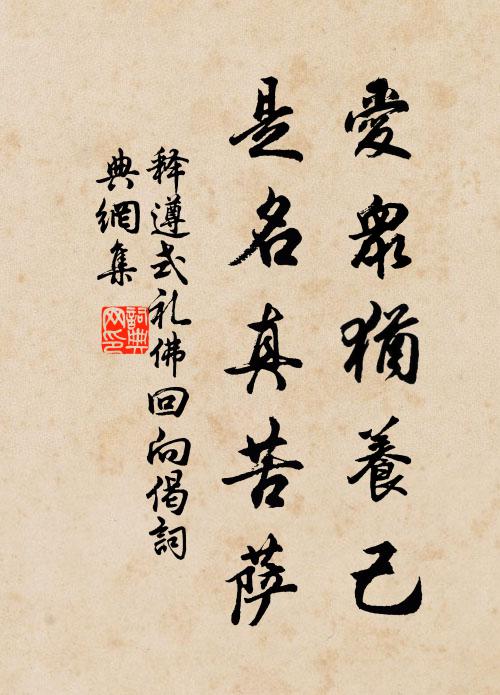 愛衆猶養己
是名真苦薩
释遵式礼佛回向偈詞
典網集
詞典
网印